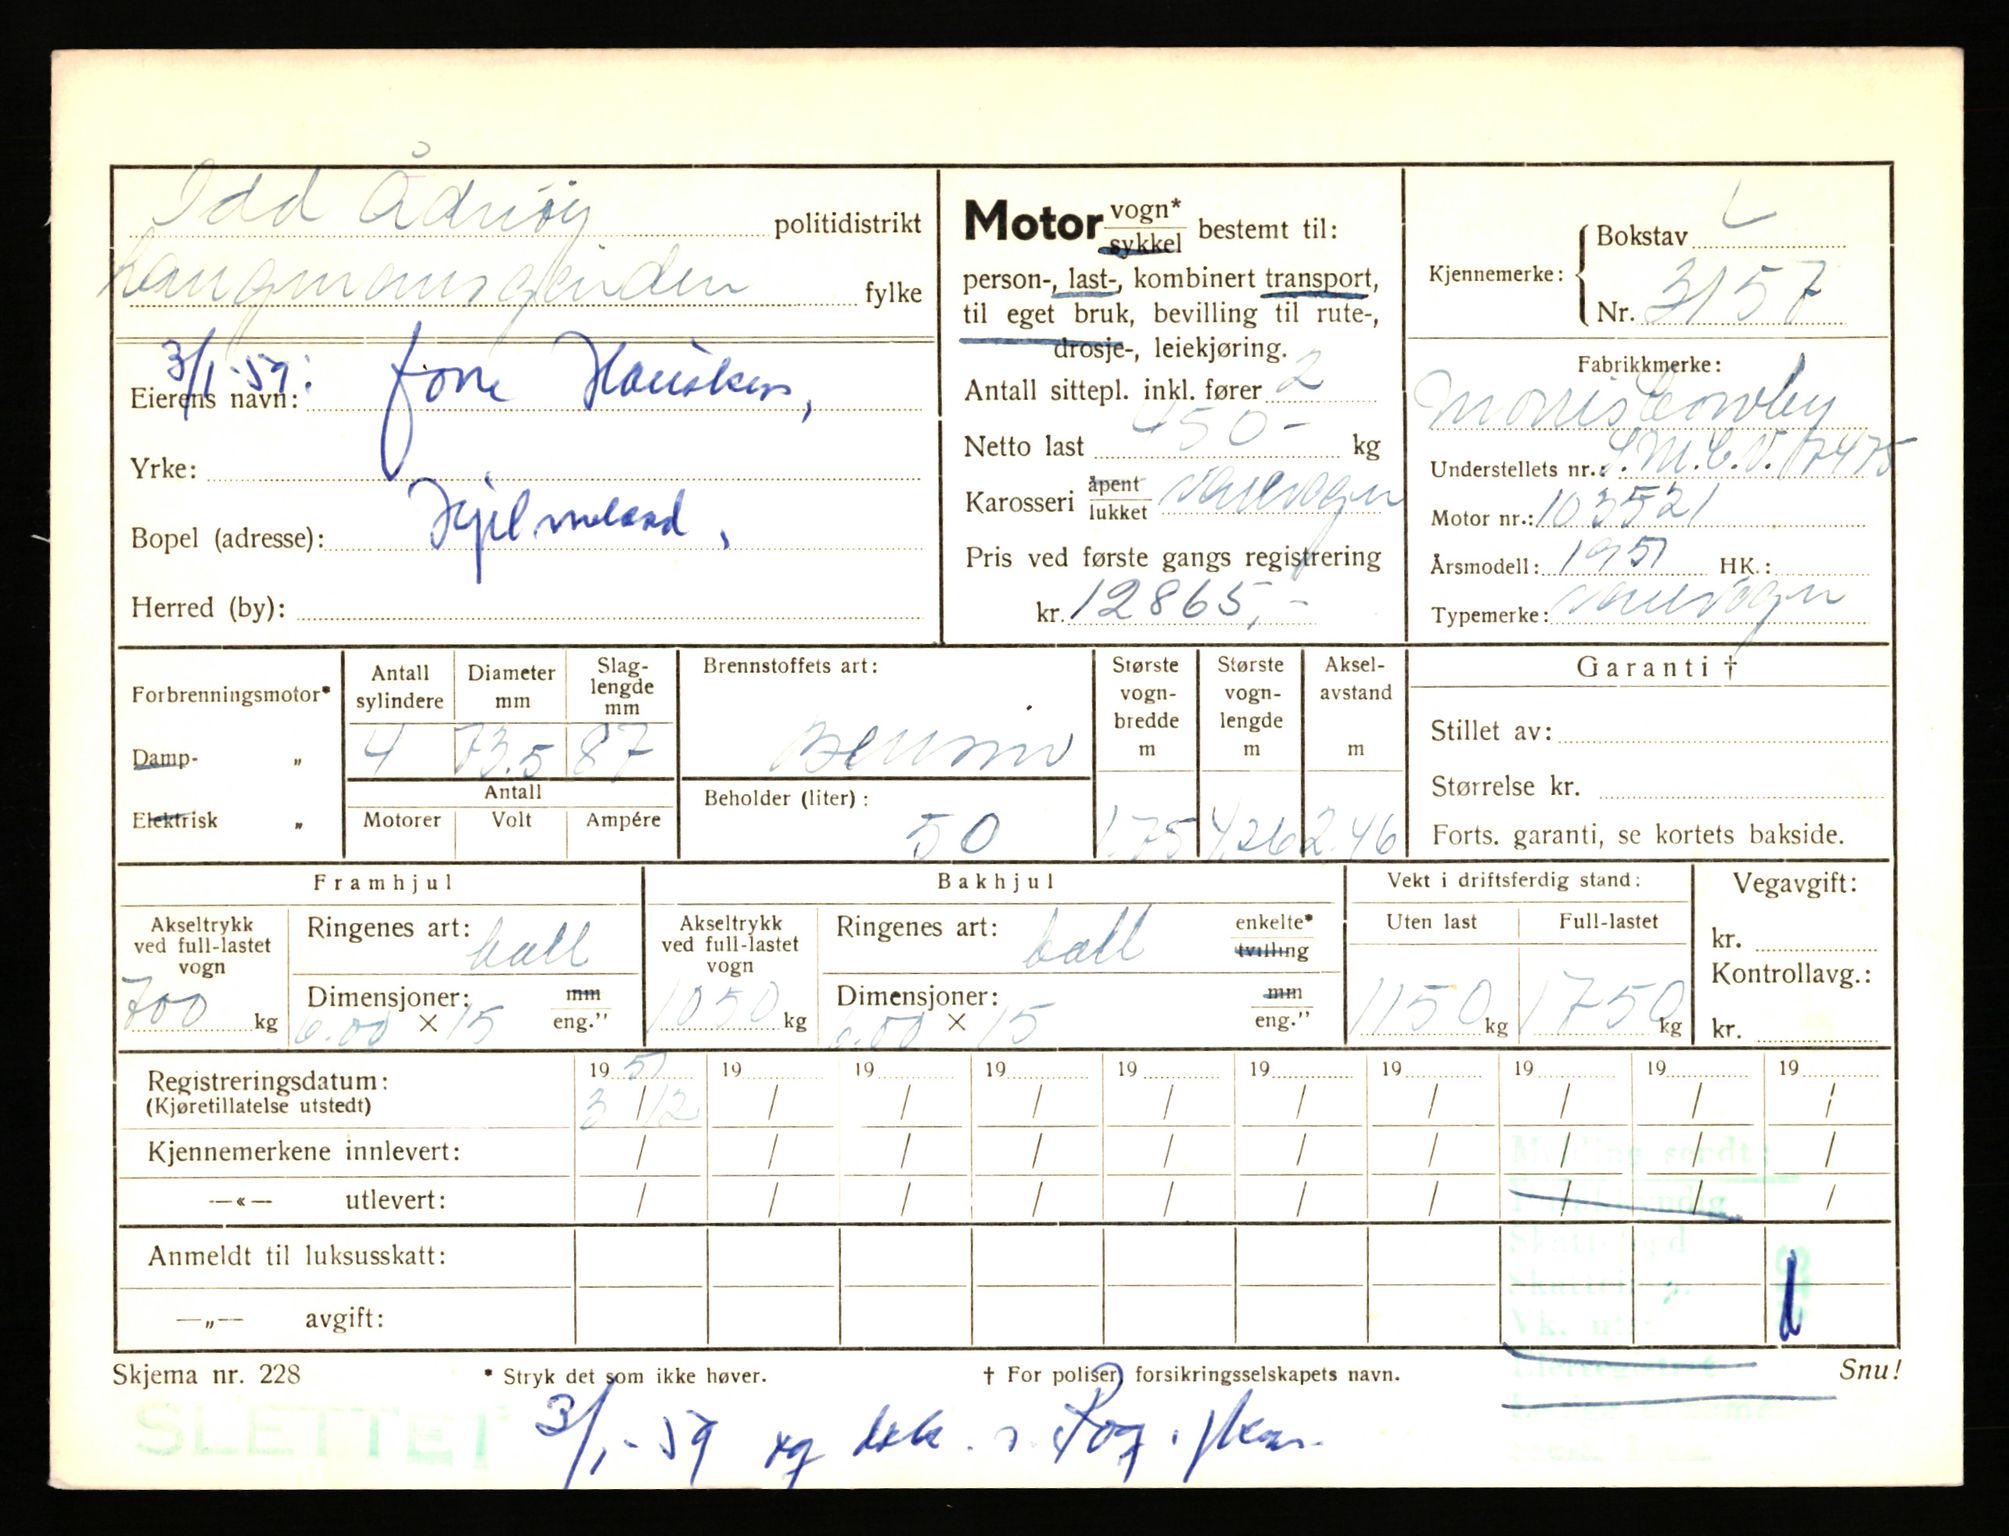 Idd politidistrikt
fylke
3/1-59:
Eierens navn: Tore Hausken,
Yrke:
Bopel (adresse): Hjelmeland,
Herred (by):
Motor vogn* sykkel bestemt til:
person-, last-, kombinert transport,
til eget bruk, bevilling til rute-,
drosje-, leiekjøring.
Antall sittepl. inkl. fører 2
Netto last 450- kg
Karosseri åpent lukket varevogn
Pris ved første gangs registrering
kr. 12865,-
Kjennemerke: Bokstav L
Nr. 3157
Fabrikkmerke:
Morris Cowley
Understellets nr.: S.M.C.V. 17475
Motor nr.: 103521
Årsmodell: 1951 HK.:
Typemerke: varevogn
Forbrenningsmotor*
Damp- „
Elektrisk „
Antall sylindere Diameter mm Slag-lengde mm
4 73.5 87
Antall
Motorer Volt Ampére
Brennstoffets art:
Bensin
Beholder (liter):
50
Største vogn-bredde m
1.75
Største vogn-lengde m
4.26
Aksel-avstand m
2.46
Garanti †
Stillet av:
Størrelse kr.
Forts. garanti, se kortets bakside.
Framhjul
Akseltrykk ved full-lastet vogn
700 kg
Ringenes art: ball
Dimensjoner: mm eng."
6.00 × 15
Bakhjul
Akseltrykk ved full-lastet vogn
1050 kg
Ringenes art: ball enkelte* tvilling
Dimensjoner: mm eng."
6.00 × 15
Vekt i driftsferdig stand:
Uten last Full-lastet
1150 kg 1750 kg
Vegavgift:
kr.
Kontrollavg.:
kr.
Registreringsdatum: 1951 19 19 19 19 19 19 19 19 19
(Kjøretillatelse utstedt) 3/12 / / / / / / / / /
Kjennemerkene innlevert: / / / / / / / / / /
—«— utlevert: / / / / / / / / / /
Melding sendt:
Anmeldt til luksusskatt:
—„— avgift:
Skjema nr. 228 * Stryk det som ikke høver. † For poliser, forsikringsselskapets navn. Snu!
SLETTET 3/1-59